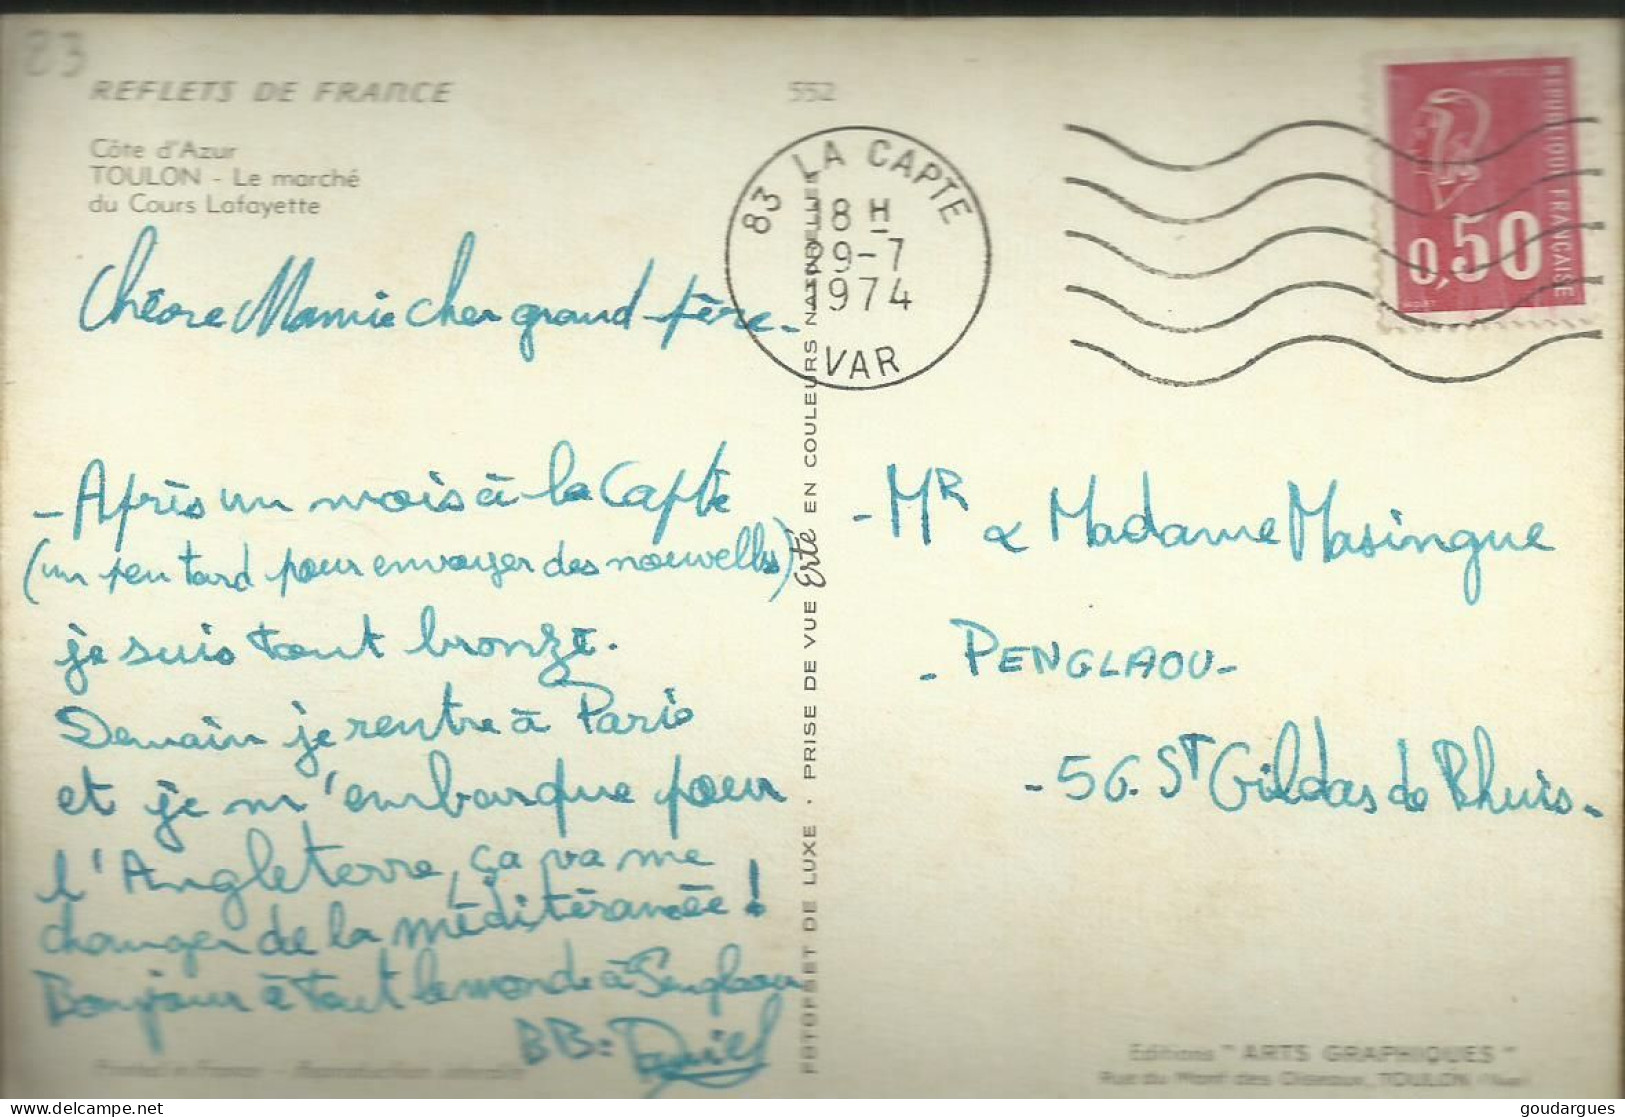 83
REFLETS DE FRANCE
552
Côte d'Azur
TOULON - Le marché
du Cours Lafayette
83 LA CAPTE
18 H
29-7
1974
VAR
REPUBLIQUE FRANÇAISE
0,50
Chère Mamie cher grand-père-
- Après un mois à la Capte
(un peu tard pour envoyer des nouvelles)
je suis tout bronzé.
Demain je rentre à Paris
et je m'embarque pour
l'Angleterre, ça va me
changer de la méditéranée!
Bonjour à tout le monde à Penglaou
BB: Daniel
FOTOFSET DE LUXE · PRISE DE VUE Erté EN COULEURS NATURELLES
- MR & Madame Masingue
- PENGLAOU -
- 56. ST Gildas de Rhuis -
Printed in France - Reproduction interdite
Editions "ARTS GRAPHIQUES"
Rue du Mont des Oiseaux, TOULON (Var)
goudargues
© delcampe.net